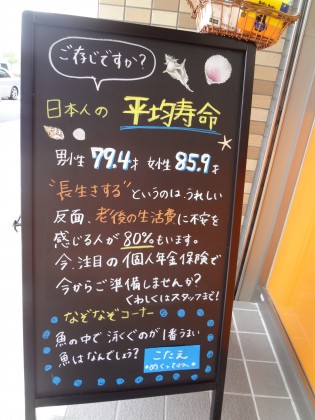 ご存じですか?
日本人の 平均寿命
男性 79.4才 女性 85.9才
"長生きする"というのは、うれしい
反面、老後の生活費に不安を
感じる人が 80%もいます。
今、注目の個人年金保険で
今からご準備しませんか?
くわしくはスタッフまで!
なぞなぞコーナー
魚の中で 泳ぐのが1番うまい
魚はなんでしょう?
こたえ
めくってネ。